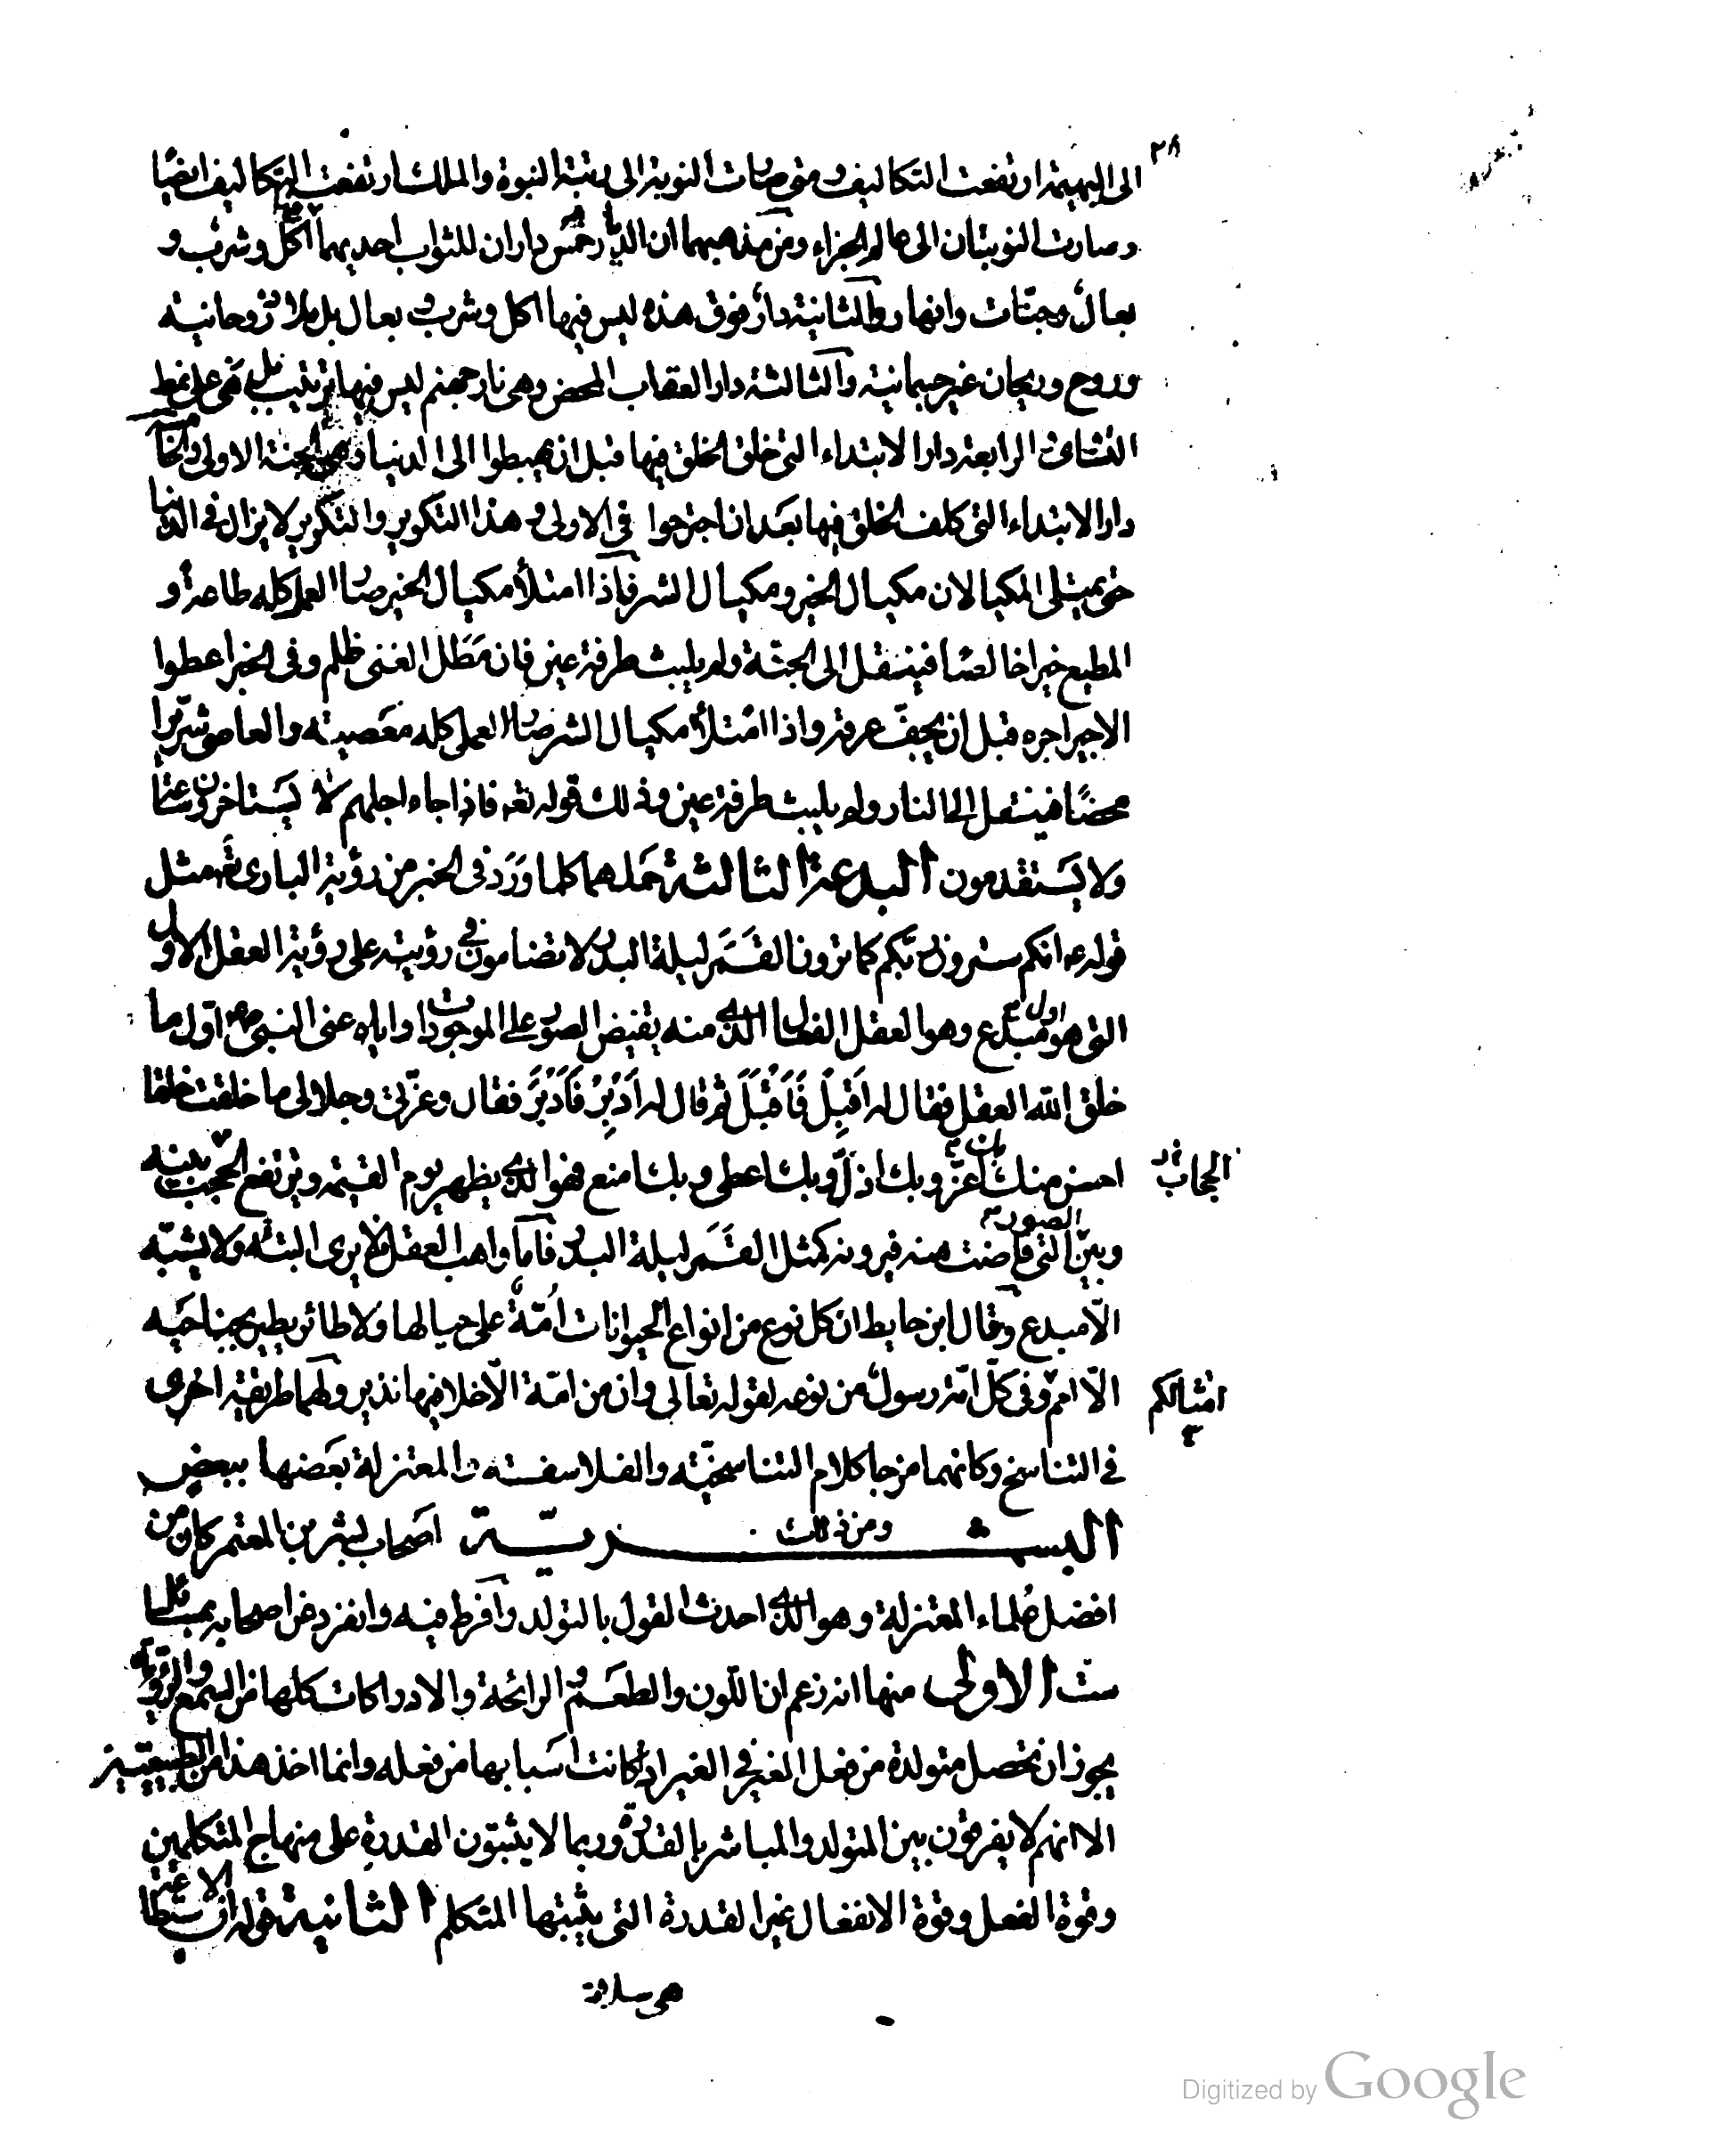 ٢٨
الى البهيمة ارتفعت التكاليف ومتى صارت النوبة الى رتبة النبوة والملك ارتفعت التكاليف ايضًا
وصارت النوبتان الى عالم الجزاء ومن مذهبهما ان الديار خمس داران للثواب احديهما اكل وشرب و
بعال وجنّات وانهار والثانية دار فوق هذه ليس فيها اكل وشرب وبعال بل ملاذ روحانية
وروح وريحان غير جسمانية والثالثة دار العقاب المحض وهى نار جهنم ليس فيها ترتيب بل هى على نمط
التساوى الرابعة دار الابتداء التى خلق الخلق فيها قبل ان يهبطوا الى الدنيا وهى الجنة الاولى والخامسة
دار الابتداء التى كلف الخلق فيها بعد ان اجترحوا فى الاولى وهذا التكوير والتكرير لا يزال فى الدنيا
حتى يمتلى المكيالان مكيال الخير ومكيال الشر فاذا امتلأ مكيال الخير صار العمل كله طاعة و
المطيع خيرا خالصا فينتقل الى الجنّة ولم يلبث طرفة عين فان مَطَل الغنى ظلم وفى الخبر اعطوا
الاجير اجره قبل ان يجفّ عرقه واذا امتلأ مكيال الشر صار العمل كله معصية والعاصى شرّيرا
محضًا فينتقل الى النار ولم يلبث طرفة عين وذلك قوله تعه فاذا جاء اجلهم لا يستاخرون ساعة
ولا يستقدمون البدعة الثالثة حملهما كلما ورد فى الخبر من رؤية البارى تع مثل
قوله عم انكم سترون ربّكم كما ترون القمر ليلة البدر لا تضامون فى رؤيته على رؤية العقل الاول
التى هو اول مبدع وهو العقل الفعال الذى منه يفيض الصور على الموجودات واياه عنى النبى صعم اوّل ما
خلق الله العقل فقال له اَقبِل فَاَقْبَلَ ثم قال له اَدْبِرْ فَاَدْبَرَ فقال وعزّتى وجلالى ما خلقت خلقا
احسن منك بك اعزّ وبك اذلّ وبك اعطى وبك امنع فهو الذى يظهر يوم القيمة ويرتفع الحجب بينه
الحجاب
وبين الصور التى فاضت منه فيرونه كمثل القمر ليلة البدر فاما واهب العقل فلا يرى البتّه ولا يشبّه
الّا مبدع وقال ابن حايط ان كل نوع من انواع الحيوانات اُمّةٌ على حيالها ولا طائر يطير بجناحيه
الّا امم وفى كلّ امّة رسولٌ من نوعه لقوله تعالى وان من امّة الّا خلا فيها نذير ولهما طريقة اخرى
امثالكم
فى التناسخ وكانهما مزجا كلام التناسخيّة والفلاسفة والمعتزلة بعضها ببعض
ومن ذلك
البشـــــــــــــريّـــــة اصحاب بشر بن المعتمر كان من
افضل علماء المعتزلة وهو الذى احدث القول بالتولد وافرط فيه وانفرد عن اصحابه بمسائل
ستّ الاولى منها انه زعم ان اللّون والطعم والرائحة والادراكات كلها من السمع والرؤية
يجوز ان تحصل متولدة من فعل الغير فى الغير اذا كانت اسبابها من فعله وانما اخذ هذا من الطبيعيّين
الا انهم لا يفرقون بين المتولد والمباشر بالقدرة وربما لا يثبتون القدرة على منهاج المتكلمين
وقوة الفعل وقوة الانفعال غير القدرة التى يثبتها المتكلم الثانية قوله ان الاستطاعة
هى سلامة
Digitized by Google